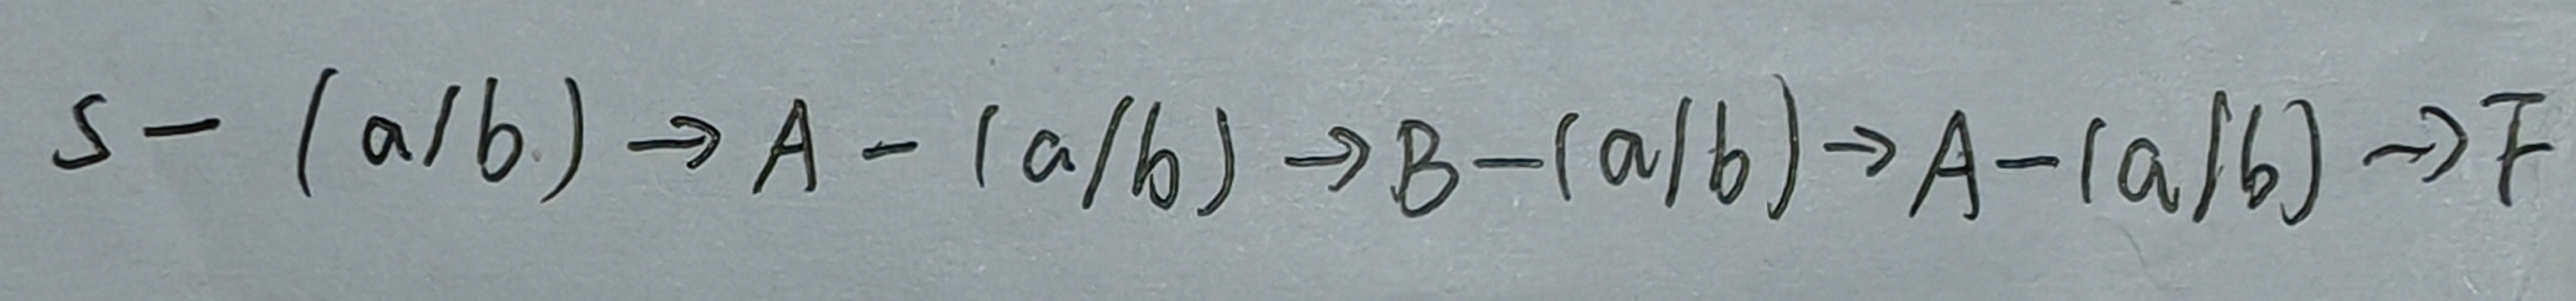 S - (a/b) → A - (a/b) → B - (a/b) → A - (a/b) → F